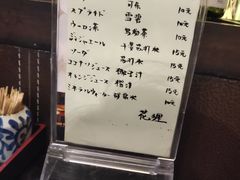 可乐 10元
スプライト 雪碧 10元
ウーロン茶 乌龙茶 10元
ジンジャエール 干姜水 15元
ソーダ 苏打水 15元
ココナツジュース 椰子汁 15元
オレンジジュース 橙汁 15元
ミネラルウォーター 矿泉水 10元
花